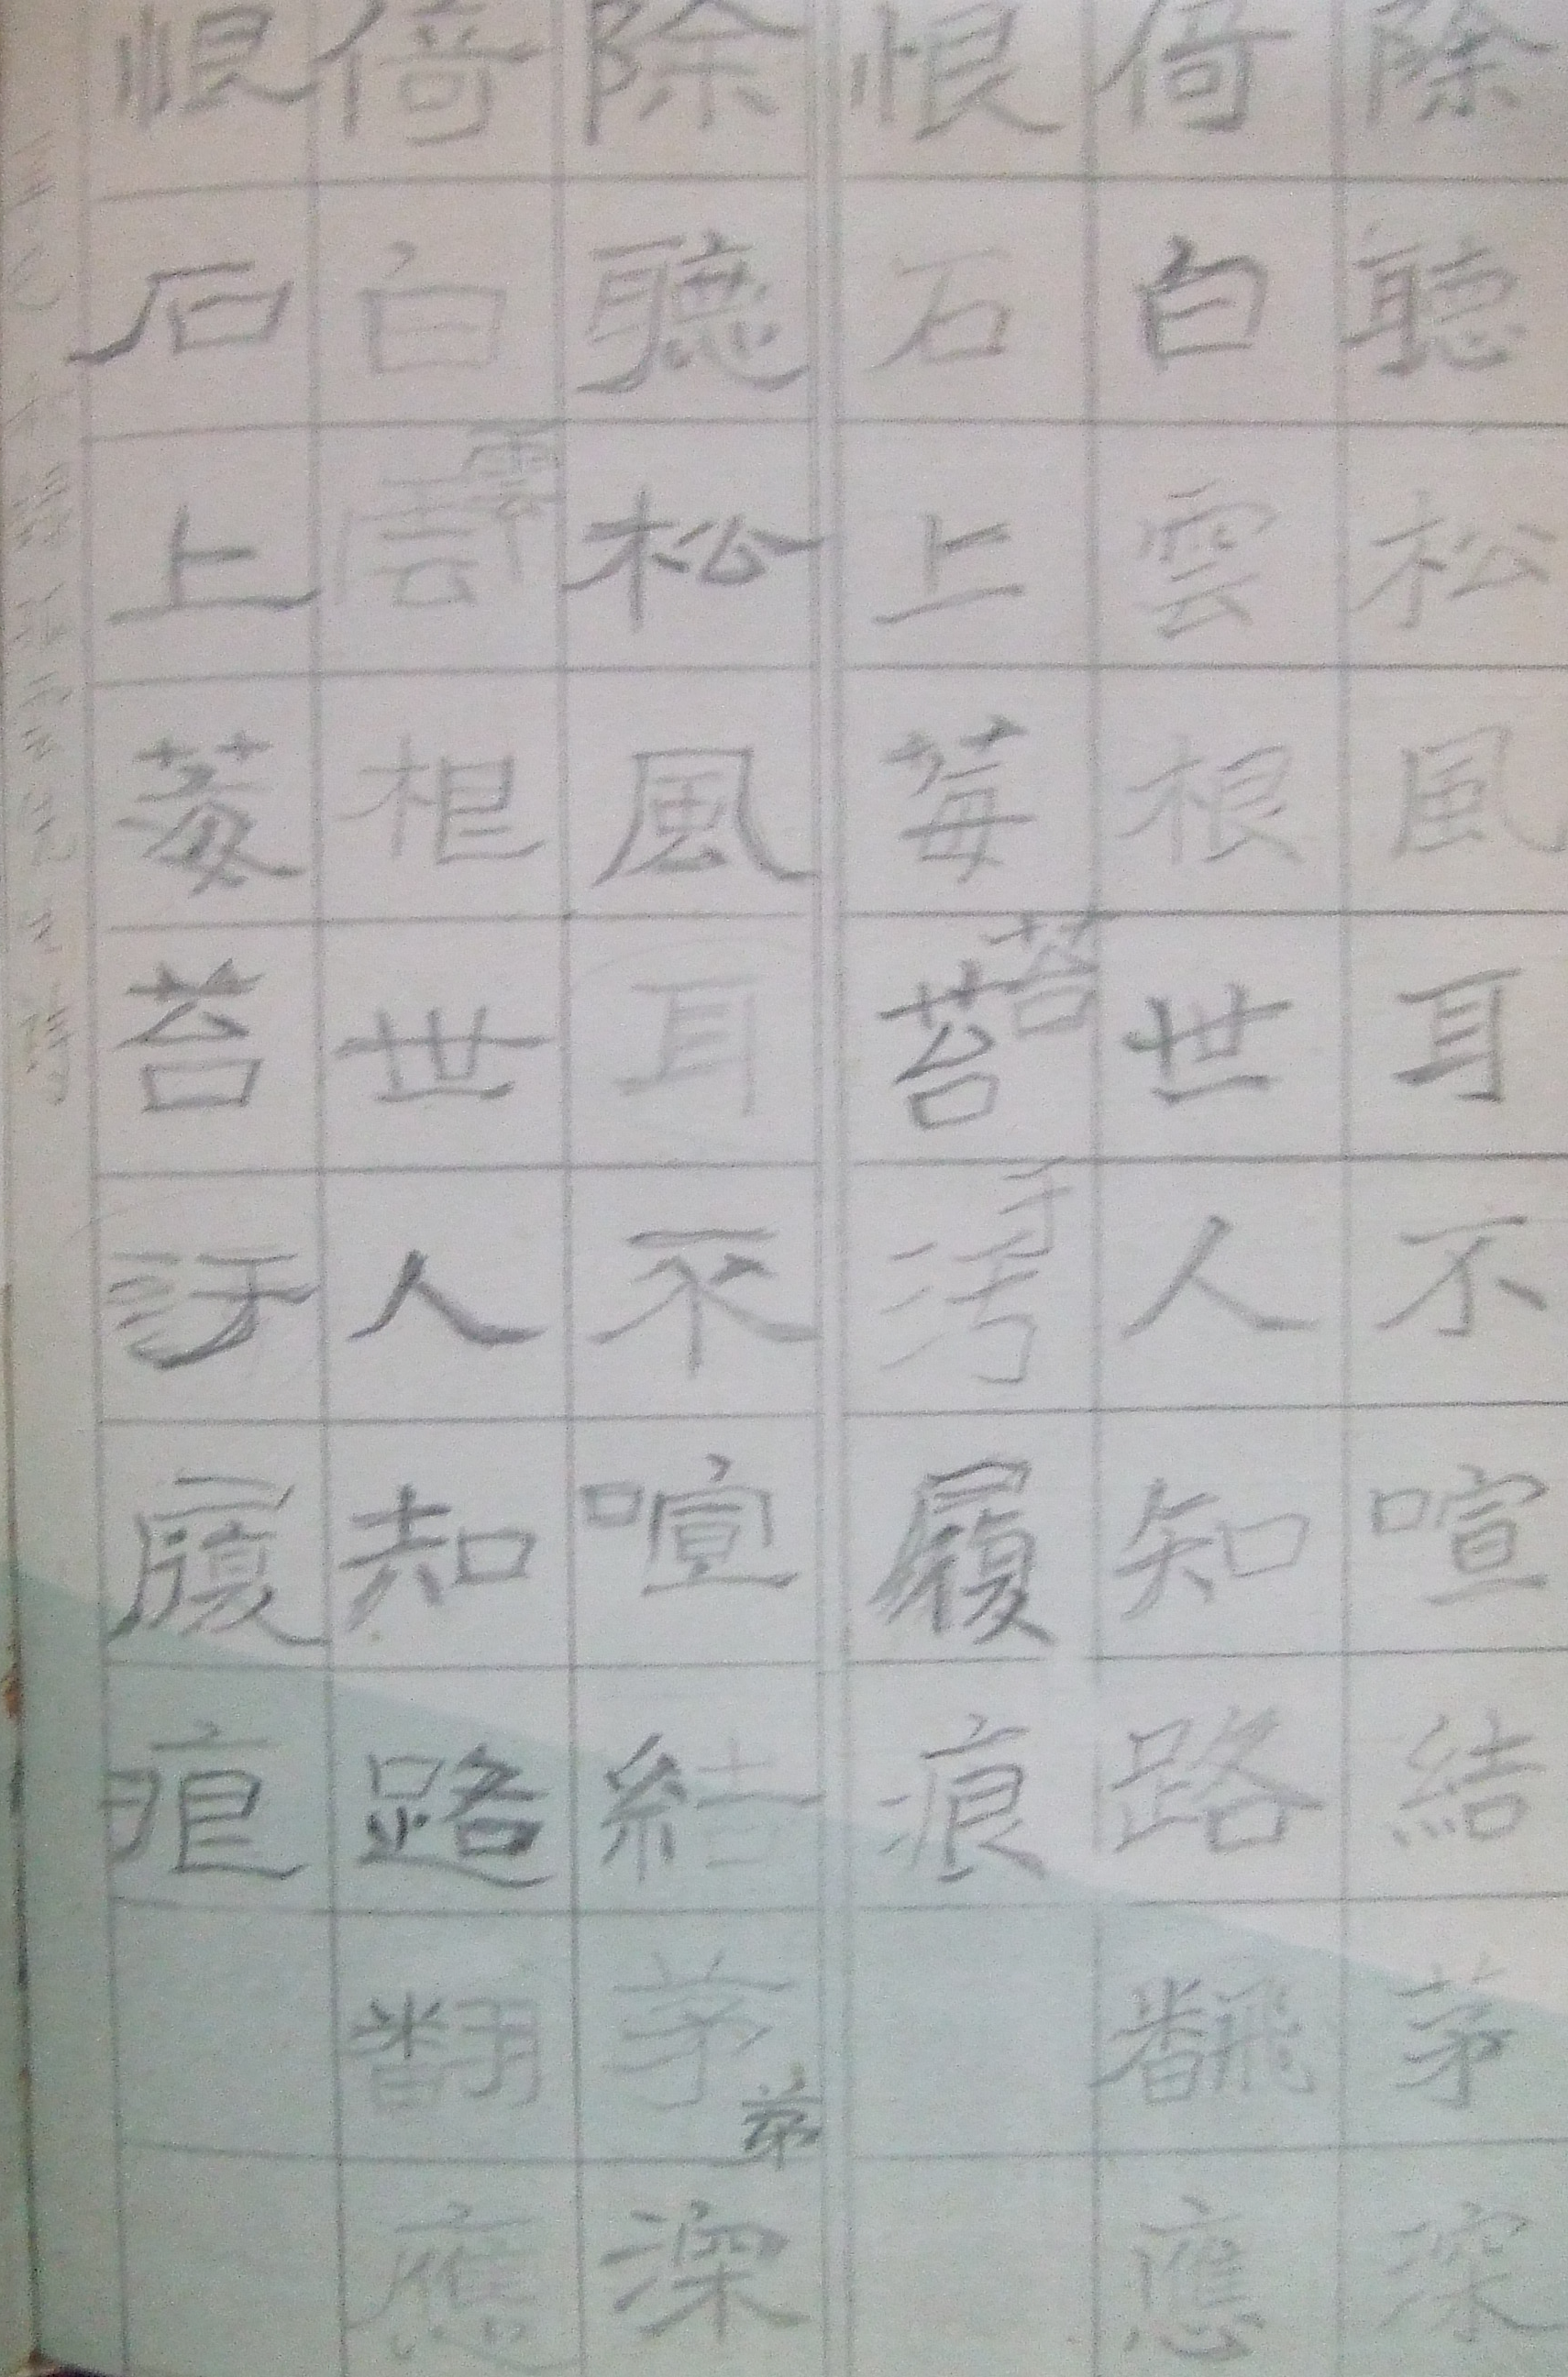 除聽松風耳不喧結茅深
倚白雲根世人知路翻應
恨石上莓苔汚履痕
除聽松風耳不喧結茅深
茅
倚白雲根世人知路翻應
雲
恨石上苔訝履痕
苔
于